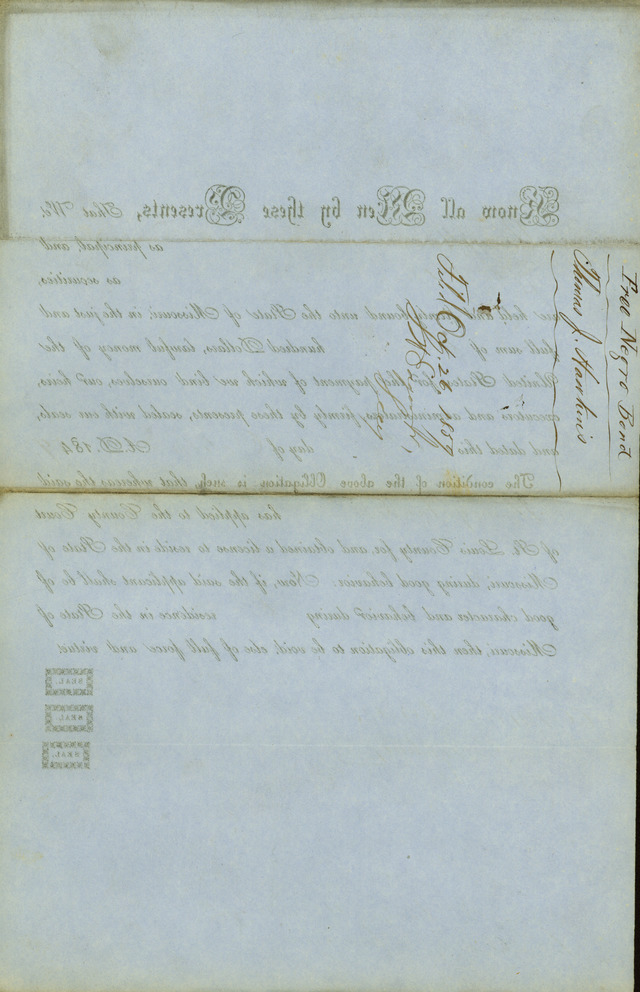 Free Negro Bond
Thomas J. Hawkins
Fil'd Oct. 26, 1857
Know all Men by these Presents, That We
as principal, and
as securities,
held and bound unto the State of Missouri, in the just and
full sum of hundred Dollars, lawful money of the
United States, for the payment of which we bind ourselves, our heirs,
executors and administrators, firmly by these presents, sealed with our seals,
and dated this day of A.D. 184
The condition of the above Obligation is such, that whereas the said
has applied to the County Court
of St. Louis County for, and obtained a license to reside in the State of
Missouri, during good behavior: Now, if the said applicant shall be of
good character and behavior during residence in the State of
Missouri, then this obligation to be void, else of full force and virtue.
SEAL.
SEAL.
SEAL.